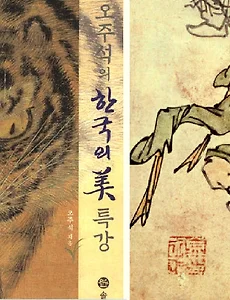 오주석의 한국의 美 특강
오주석 지음
솔